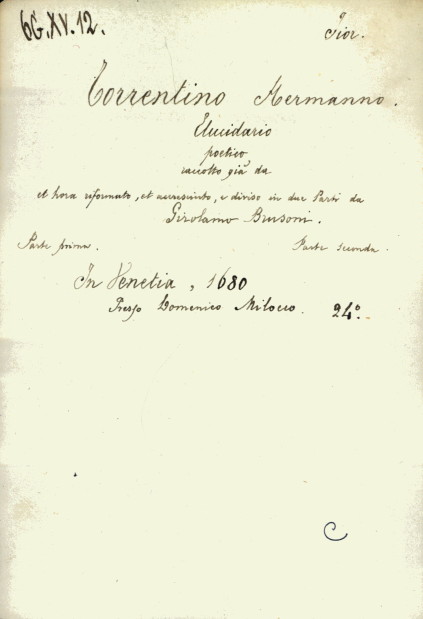 6G.XV.12.
Fior.
Torrentino Hermanno.
Elucidario
poetico
raccolto già da
et hora riformato, et accresciuto, e diviso in due Parti da
Girolamo Brusoni.
Parte prima. Parte seconda.
In Venetia, 1680
Presso Domenico Milocco. 24º.
C